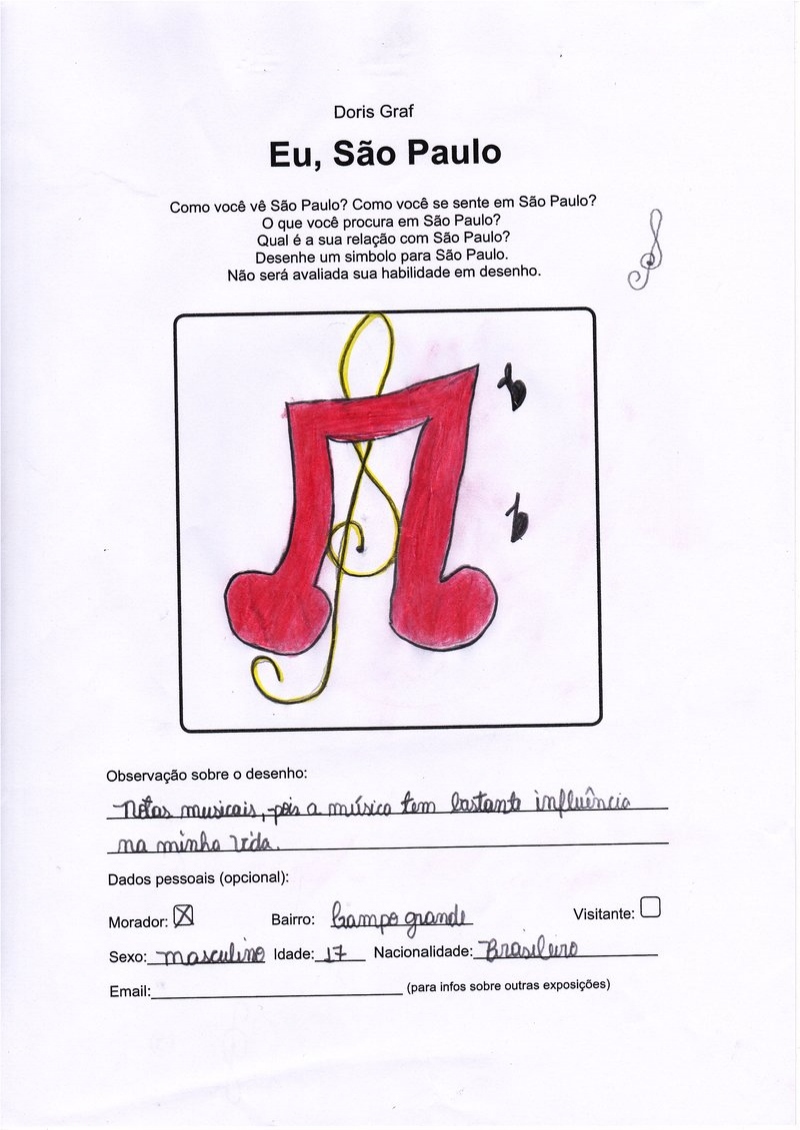 Doris Graf
Eu, São Paulo
Como você vê São Paulo? Como você se sente em São Paulo?
O que você procura em São Paulo?
Qual é a sua relação com São Paulo?
Desenhe um simbolo para São Paulo.
Não será avaliada sua habilidade em desenho.
Observação sobre o desenho:
Notas musicais, pois a música tem bastante influência
na minha vida.
Dados pessoais (opcional):
Morador: X Bairro: Campo grande Visitante:
Sexo: masculino Idade: 17 Nacionalidade: Brasileiro
Email: (para infos sobre outras exposições)